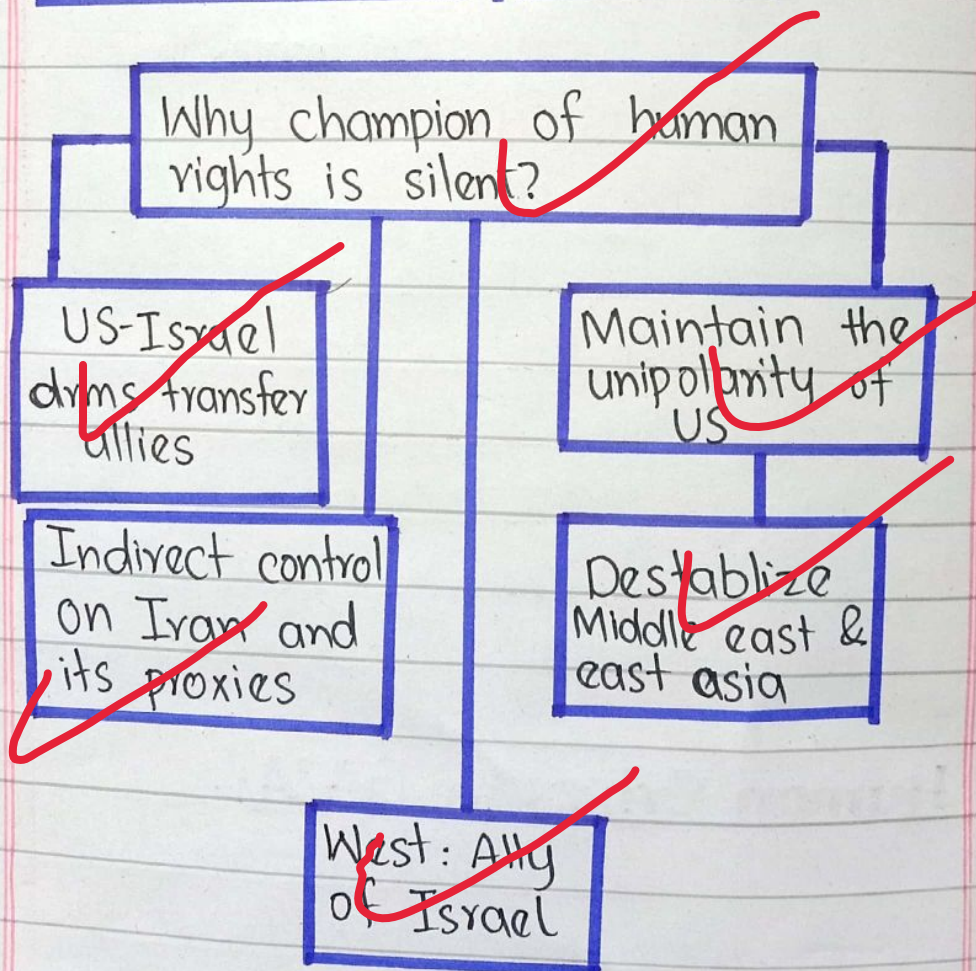 Why champion of human
rights is silent?
US-Israel
arms transfer
allies
Maintain the
unipolarity of
US
Indirect control
on Iran and
its proxies
Destablize
Middle east &
east asia
West: Ally
of Israel